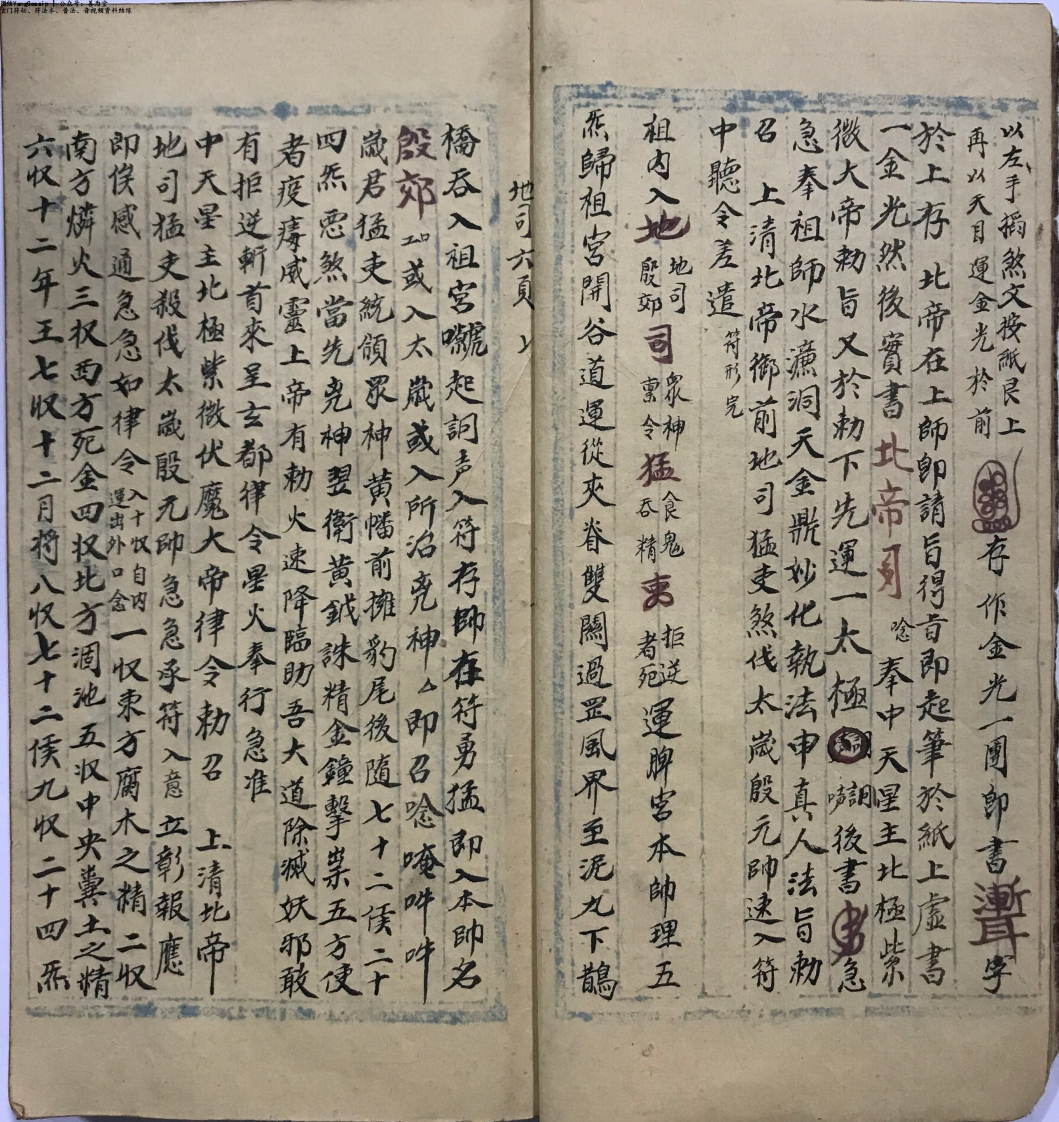 以左手掐煞文按紙艮上
再以天目運金光於前
存作金光一團即書
字
於上存 北帝在上師即請旨得旨即起筆於紙上虛書
一金光然後實書北帝 唸奉中天星主北極紫
微大帝勅旨又於勅下先運一太極 後書 急
急奉祖師水濂洞天金鼎妙化執法申真人法旨勅
召 上清北帝御前地司猛吏煞伐太歲殷元帥速入符
中聽令差遣 符形完
祖内入地 地司殷郊 司 眾神稟令 猛 食鬼吞精 吏 拒逆者死 運脾宮本帥理五
炁歸祖宮開谷道運從夾脊雙關過罡風界至泥丸下鵲
地司六頁
橋吞入祖宮 起詞声入符存帥在符勇猛即入本帥名
殷郊 或入太歲或入所治尭神 即召唸唵吽吽
歲君猛吏統領眾神黃幡前擁豹尾後随七十二侯二十
四炁惡煞當先尭神翌衛黃鉞誅精金鐘擊祟五方使
者疫痷威靈上帝有勅火速降臨助吾大道除滅妖邪敢
有拒逆斬首來呈玄都律令星火奉行急准
中天星主北極紫微伏魔大帝律令勅召 上清北帝
地司猛吏殺伐太歲殷元帥急急承符入意立彰報應
即俟感通急急如律令 入十収自内運出外口念 一収東方腐木之精二収
南方燐火三収西方死金四収北方涸池五収中央糞土之精
六収十二年王七収十二月將八収七十二侯九収二十四炁